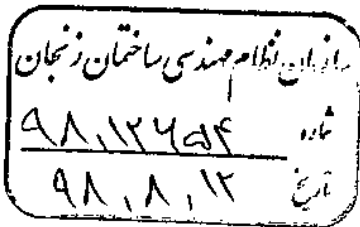 سازمان نظام مهندسی ساختمان زنجان
شماره ۹۸,۱۲۶۵۴
تاریخ ۹۸,۸,۱۲